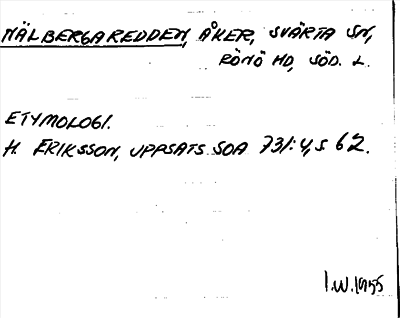 NÄLBERGAREDDEN, ÅKER, SVÄRTA SN,
RÖNÖ HD, SÖD. L.
ETYMOLOGI.
H. ERIKSSON, UPPSATS SOA 731:4, S 62.
I.W. 1955